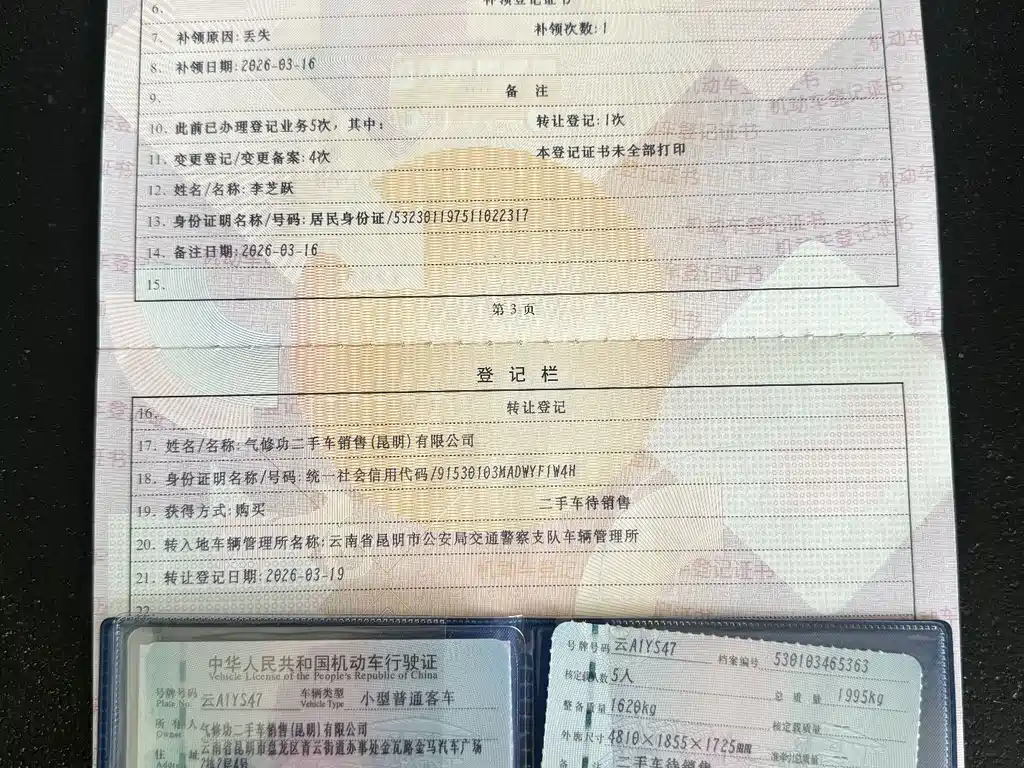 6. 补领登记证书
7. 补领原因:丢失 补领次数:1
8. 补领日期:2026-03-16
9. 备 注
10. 此前已办理登记业务5次，其中: 转让登记:1次
11. 变更登记/变更备案:4次 本登记证书未全部打印
12. 姓名/名称:李芝跃
13. 身份证明名称/号码:居民身份证/532301197511022317
14. 备注日期:2026-03-16
15.
第 3 页
登 记 栏
16. 转让登记
17. 姓名/名称:气修功二手车销售(昆明)有限公司
18. 身份证明名称/号码:统一社会信用代码/91530103MADWYF1W4H
19. 获得方式:购买 二手车待销售
20. 转入地车辆管理所名称:云南省昆明市公安局交通警察支队车辆管理所
21. 转让登记日期:2026-03-19
22
中华人民共和国机动车行驶证
Vehicle License of the People's Republic of China
号牌号码 云A1YS47 车辆类型 小型普通客车
Plate No. Vehicle Type
所有人 气修功二手车销售(昆明)有限公司
Owner
住 址 云南省昆明市盘龙区青云街道办事处金瓦路金马汽车广场
Address
号牌号码 云A1YS47 档案编号 530103465363
核定载人数 5人 总质量 1995kg
整备质量 1620kg 核定载质量 —
外廓尺寸 4810×1855×1725mm 准牵引总质量 —
备 注 二手车待销售